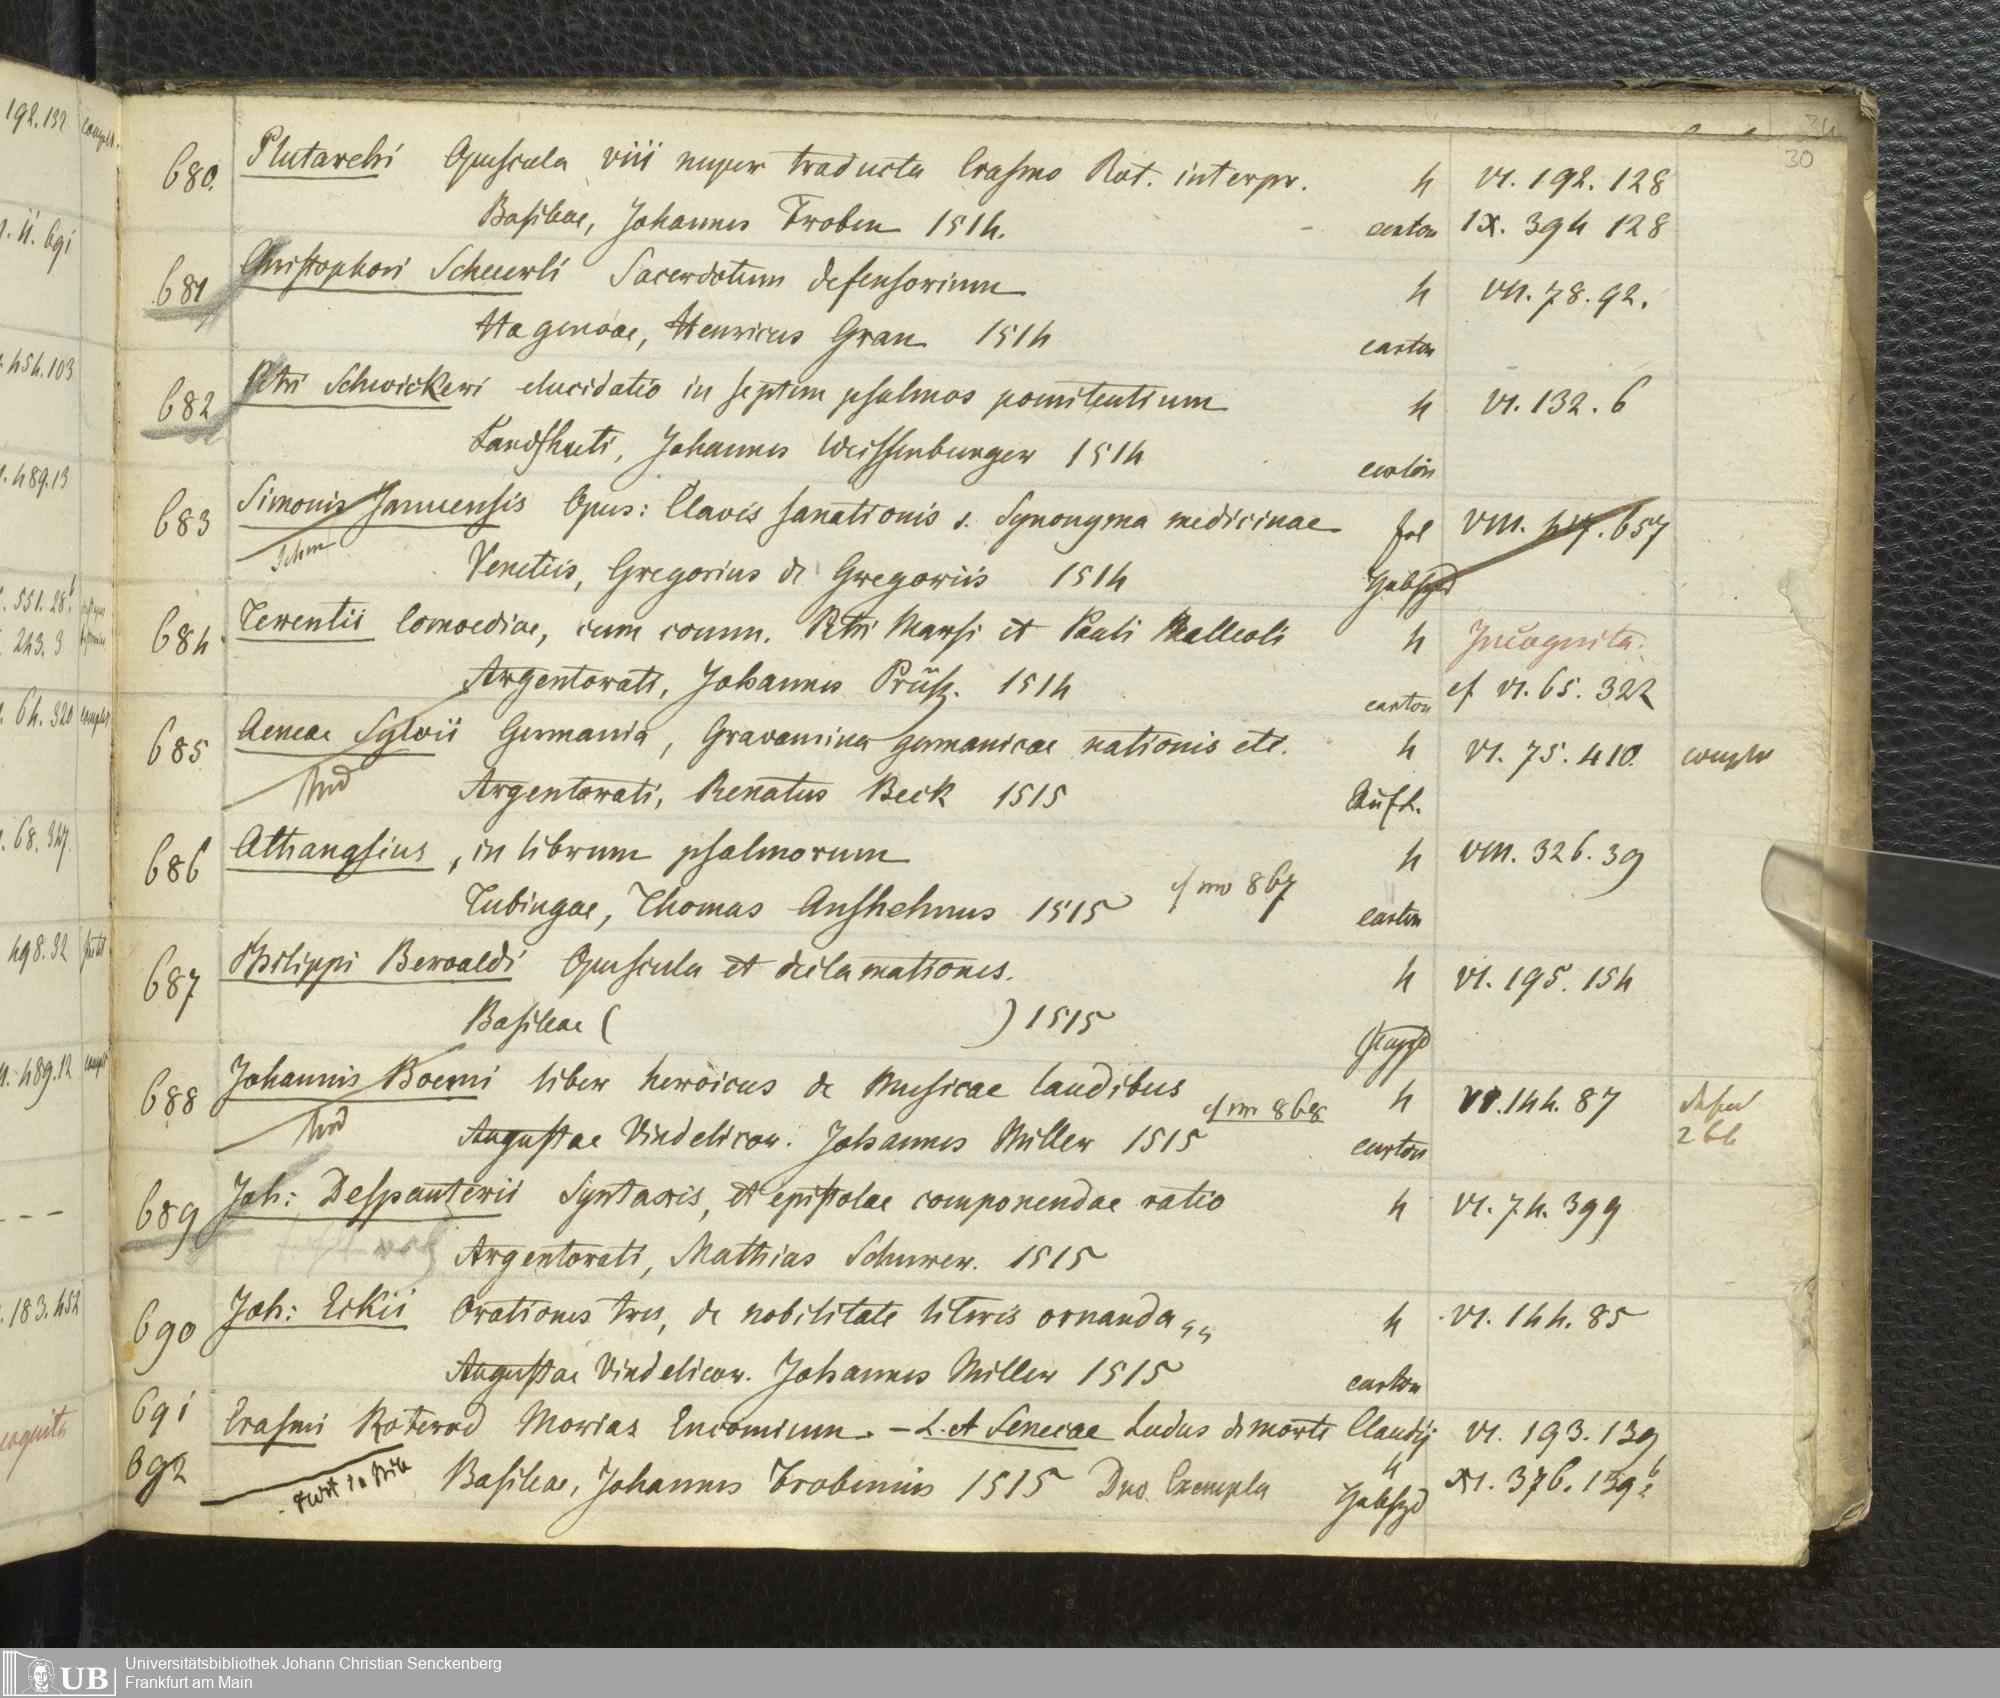 34
30
192.132 complt.
680. Plutarchi Opuscula viii nuper traducta Erasmo Rot. interpr. 4 VI. 192. 128
Basileae, Johannes Froben 1514. carton IX. 394 128
681 Christophori Scheurli Sacerdotum defensorium 4 VII. 78. 92.
Hagenoae, Henricus Gran 1514 carton
682 Petri Schwickeri elucidatio in septem psalmos poenitentium 4 VI. 132. 6
Landshuti, Johannes Weissenburger 1514 carton
683 Simonis Januensis Opus: Clavis sanationis s. Synonyma medicinae fol VIII. 417. 657
Venetiis, Gregorius de Gregoriis 1514
684 Terentii Comoediae, cum comm. Petri Marsi et Pauli Malleoli 4 Incognita.
Argentorati, Johannes Prüß. 1514 carton cf VI. 65. 322
685 Aeneae Sylvii Germania, Gravamina germanicae nationis etc. 4 VI. 75. 410. complet
Argentorati, Renatus Beck 1515
686 Athanasius, in librum psalmorum 4 VIII. 326. 39
Tubingae, Thomas Anshelmus 1515 cf no 867 carton
687 Philippi Beroaldi Opuscula et declamationes. 4 VI. 195. 154
Basileae ( ) 1515
688 Johannis Boemi liber heroicus de Musicae laudibus 4 VI. 144. 87 defect
Augustae Vindelicor. Johannes Miller 1515 cf no 868 carton 2 bb
689 Joh: Despauterii Syntaxis, et epistolae componendae ratio 4 VI. 74. 399
Argentorati, Mathias Schurer. 1515
690 Joh: Eckii Orationes tres, de nobilitate literis ornanda 4 VI. 144. 85
Augustae Vindelicor. Johannes Miller 1515 carton
691 Erasmi Roterod Morias Encomium. – L. A Senecae Ludus de morte Claudij VI. 193. 139
692 Basileae, Johannes Frobenius 1515 Duo Exempla 4 XI. 376. 139b
Universitätsbibliothek Johann Christian Senckenberg
UB
Frankfurt am Main